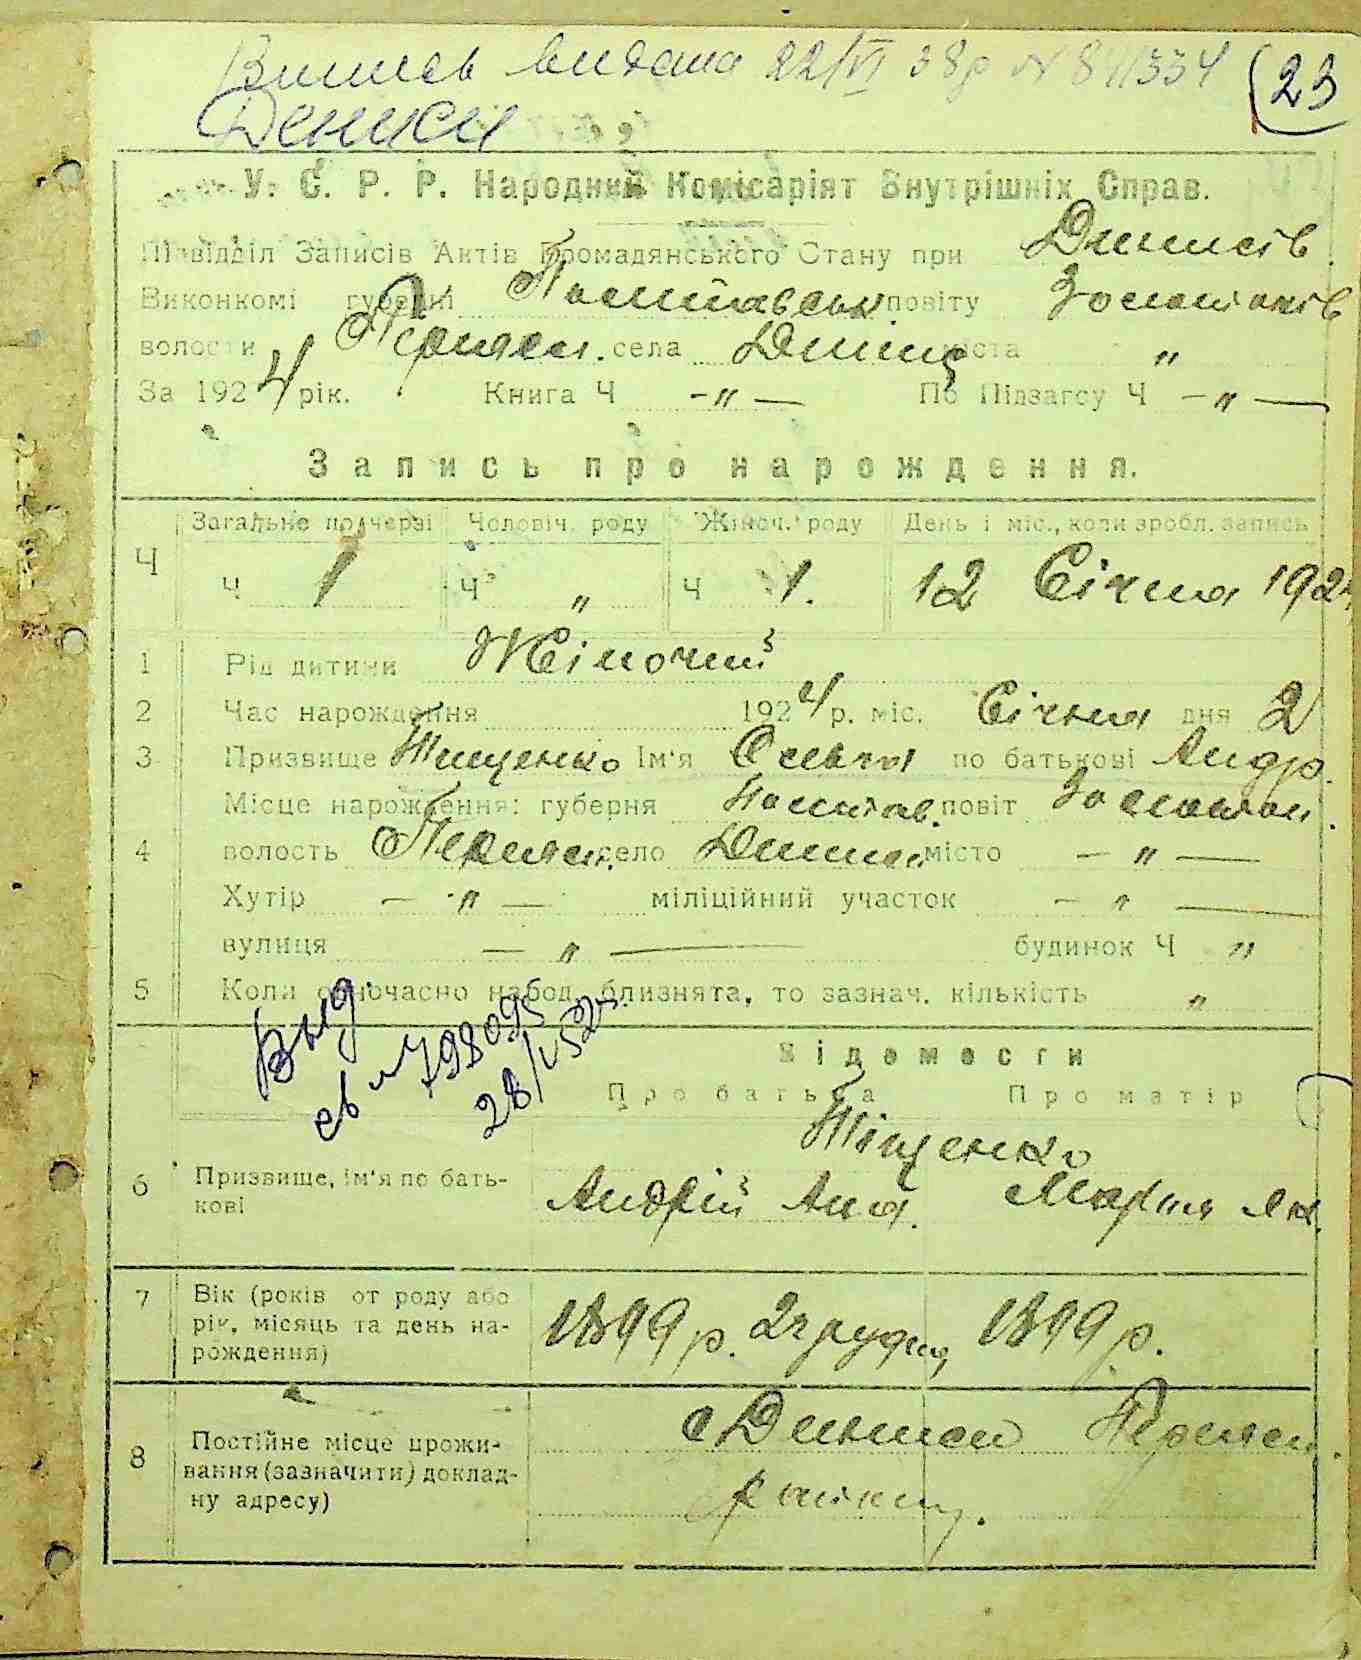 Випись видана 22/VI 38р № 841334 (23
Дениси
У. С. Р. Р. Народний Комісаріят Внутрішніх Справ.
Підвідділ Записів Актів Громадянського Стану при Дениськ
Виконкомі губерні Полтавськ повіту Золотонів
волости Переясл. села Дениси міста "
За 1924 рік. Книга Ч -"- По Підзагсу Ч -"-
Запись про нарождення.
Загальне по черзі Человіч. роду Жіноч. роду День і міс., коли зробл. запись
Ч Ч 1 Ч " Ч 1. 12 Січня 1924
1 Рід дитини Жіночий
2 Час нарождення 1924 р. міс. Січня дня 2
3 Призвище Тищенко Ім'я Ольга по батькові Андр.
Місце нарождення: губерня Полтав. повіт Золотон.
4 волость Переясл. село Дениси місто - " -
Хутір - " - міліційний участок - " -
вулиця - " - будинок Ч "
5 Коли одночасно народ. близнята, то зазнач. кількість "
Выд.
св № 798095
28/V 52г.
Відомости
Про батька Про матір
Тіщенко
6 Призвище, ім'я по бать- Андрій Ана. Мария Як.
кові
7 Вік (років от роду або
рік, місяць та день на- 1899 р. 2 грудня 1899 р.
рождення)
8 Постійне місце прожи- с Дениси Переясл.
вання (зазначити) доклад-
ну адресу) району.